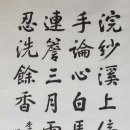 浣紗溪上
手論心白馬
連簷三月
忍洗餘香